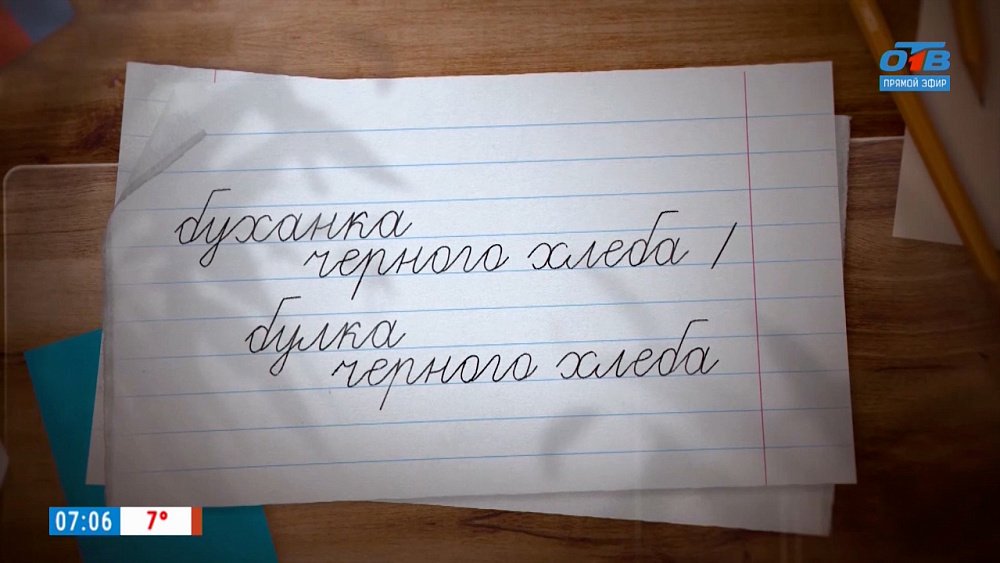 ОТВ
ПРЯМОЙ ЭФИР
буханка
черного хлеба /
булка
черного хлеба
07:06 7°